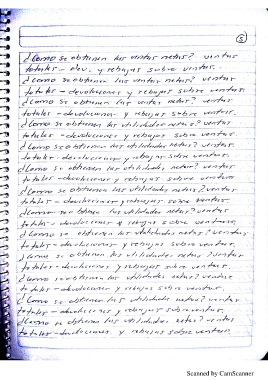 5
¿Como se obtienen las ventas netas? ventas
totales - dev. y rebajas sobre ventas.
¿Como se obtienen las utilidades netas? ventas
totales - devoluciones y rebajas sobre ventas.
¿Como se obtienen las ventas netas? ventas
totales - devoluciones y rebajas sobre ventas.
¿Como se obtienen las utilidades netas? ventas
totales - devoluciones y rebajas sobre ventas.
¿Como se obtienen las utilidades netas? ventas
totales - devoluciones y rebajas sobre ventas
¿Como se obtienen las utilidades netas? ventas
totales - devoluciones y rebajas sobre ventas.
¿Como se obtiene las utilidades netas? ventas
totales - devoluciones y rebajas sobre ventas.
¿Como se obtienen las utilidades netas? ventas
totales - devoluciones y rebajas sobre ventas.
¿Como se obtienen las utilidades netas? ventas
totales - devoluciones y rebajas sobre ventas.
¿Como se obtienen las utilidades netas? ventas
totales - devoluciones y rebajas sobre ventas.
¿Como se obtienen las utilidades netas? ventas
totales - devoluciones y rebajas sobre ventas.
¿Como se obtiene las utilidades netas? ventas
totales - devoluciones y rebajas sobre ventas.
Scanned by CamScanner